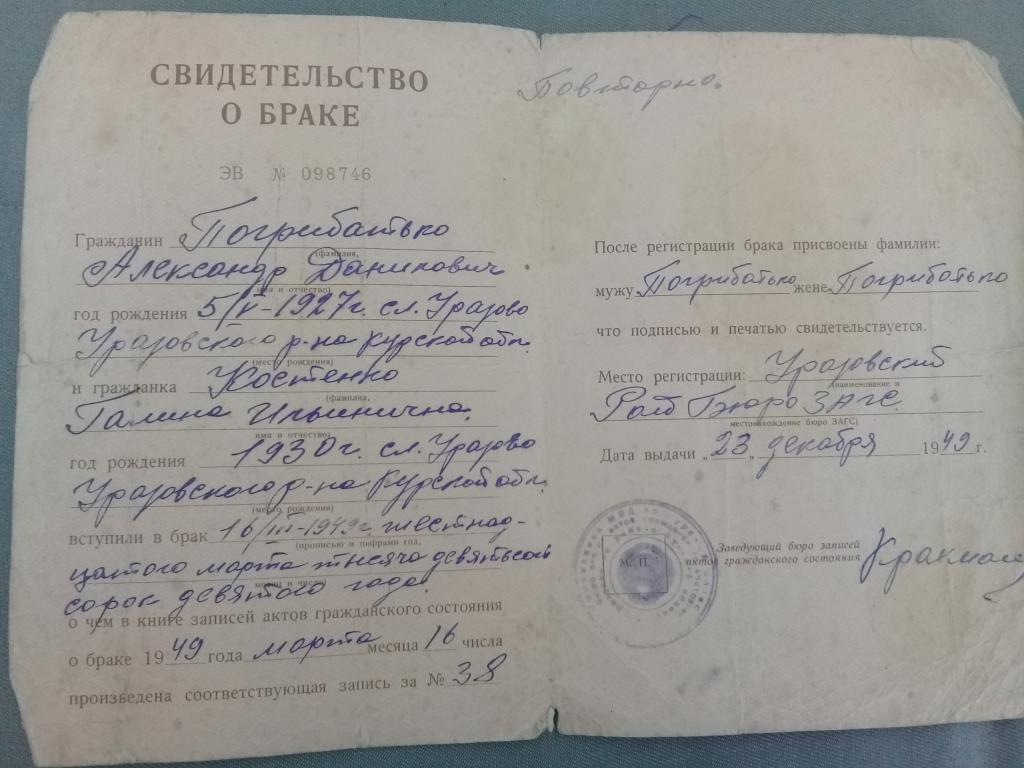 СВИДЕТЕЛЬСТВО
О БРАКЕ
ЭВ № 098746
Гражданин Погрибатько
(фамилия,
Александр Данилович
имя и отчество)
год рождения 5/V-1927г. сл. Уразово
Уразовского р-на Курской обл.
(место рождения)
и гражданка Костенко
(фамилия,
Галина Ильинична.
имя и отчество)
год рождения 1930г. сл. Уразово
Уразовского р-на Курской обл.
(место рождения)
вступили в брак 16/III-1949г. шестнад-
(прописью и цифрами год,
цатого марта тысяча девятьсот
месяц и число)
сорок девятого года.
о чем в книге записей актов гражданского состояния
о браке 1949 года марта месяца 16 числа
произведена соответствующая запись за № 38
Повторно.
После регистрации брака присвоены фамилии:
мужу Погрибатько жене Погрибатько
что подписью и печатью свидетельствуется.
Место регистрации: Уразовский
(наименование и
Бюро ЗАГС.
местонахождение бюро ЗАГС)
Дата выдачи „23„ декабря 1949 г.
М. П.
Заведующий бюро записей
актов гражданского состояния